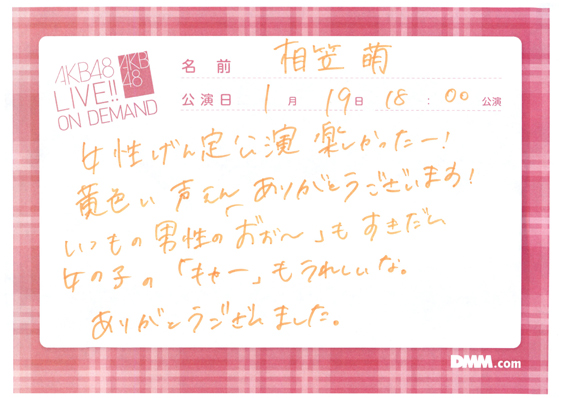 AKB48
LIVE!!
ON DEMAND
AKB
48
名前 相笠萌
公演日 1月 19日 18:00 公演
女性げん定公演 楽しかったー!
黄色い声えん ありがとうございます!
いつもの男性の「おぉ〜」もすきだし
女の子の「キャー」もうれしいな。
ありがとうございました。
DMM.com